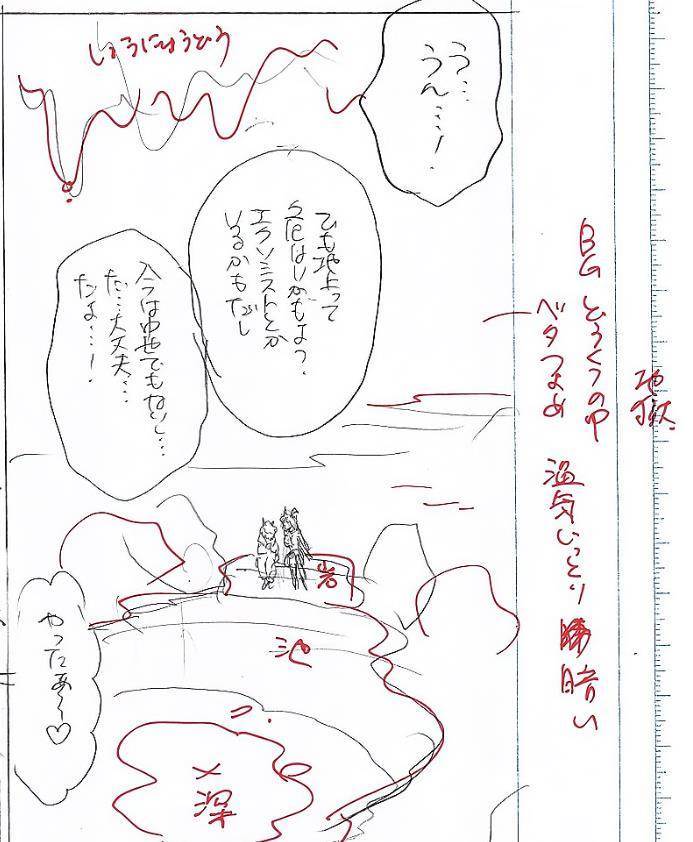 地獄
BG どうくつの中
ベタつよめ
湿気しっとり 薄暗い
しょうにゅうどう
う…
うん……!
でも地上って
危なくないかもよう?
エクソシストとか
いるかもだし
今は中世でもないし…
だ…大丈夫…
だよ…!
岩
池
深
やったあ〜♡